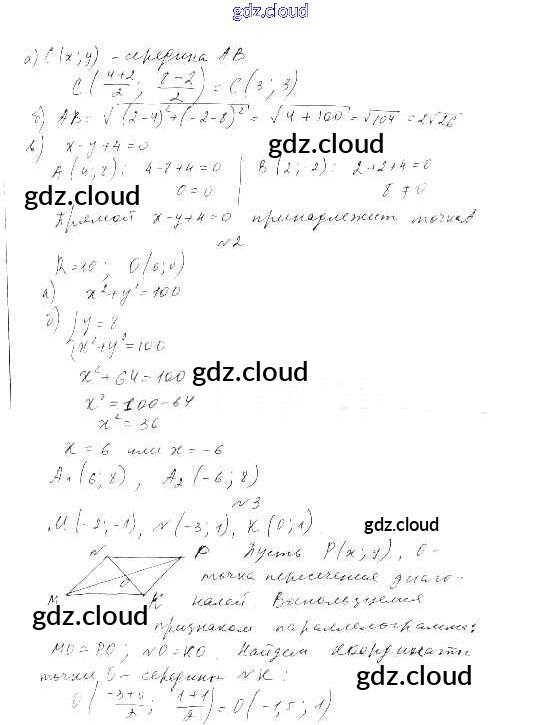 gdz.cloud
а) C(x; y) - середина AB
C((4+2)/2; (8-2)/2) = C(3; 3)
б) AB = √((2-4)²+(-2-8)²) = √(4+100) = √104 = 2√26
в) x-y+4=0
A(4; 8): 4-8+4=0 | B(2; -2): 2+2+4=0
gdz.cloud 0=0 | 8≠0 gdz.cloud
Прямой x-y+4=0 принадлежит точка A
№2
R=10; O(0; 0)
а) x²+y²=100
б) { y=8
{ x²+y²=100
x²+64=100 gdz.cloud
x²=100-64
x²=36
x=6 или x=-6
A₁(6; 8), A₂(-6; 8)
№3
M(-2; -1), N(-3; 1), K(0; 1)
gdz.cloud
N P Пусть P(x; y), O-
O точка пересечения диаго-
M K налей. Воспользуемся
gdz.cloud признаком параллелограмма:
MO=PO; NO=KO. Найдем координаты
точки O - середины NK:
gdz.cloud gdz.cloud
O((-3+0)/2; (1+1)/2) = O(-1,5; 1)